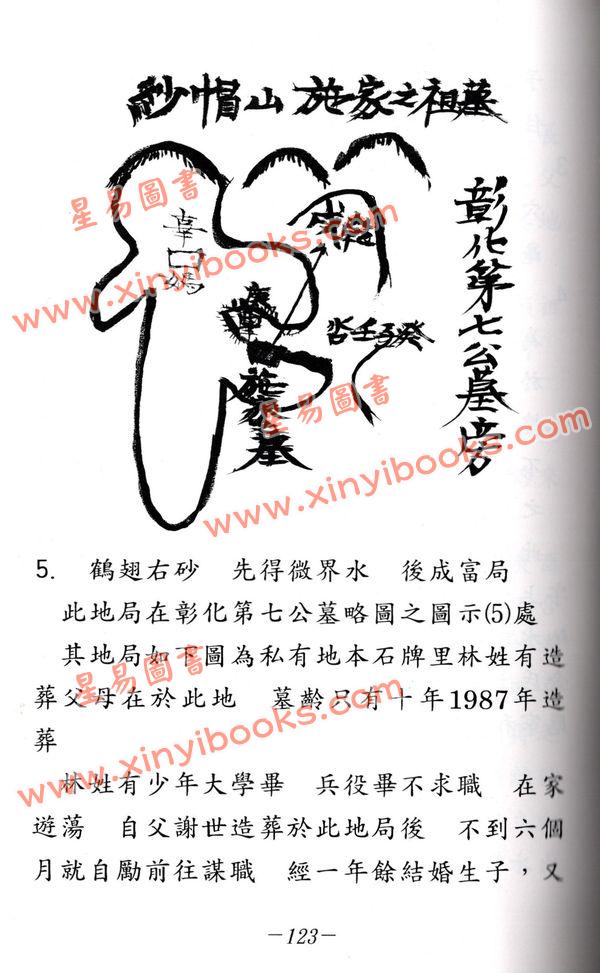 紗帽山 施家之祖墓
彰化第七公墓旁
施家墓
癸壬
5. 鶴翅右砂 先得微界水 後成富局
此地局在彰化第七公墓略圖之圖示(5)處
其地局如下圖為私有地本石牌里林姓有造
葬父母在於此地 墓齡只有十年1987年造
葬
林姓有少年大學畢 兵役畢不求職 在家
遊蕩 自父謝世造葬於此地局後 不到六個
月就自勵前往謀職 經一年餘結婚生子，又
-123-
星易圖書
www.xinyibooks.com
星易圖書
www.xinyibooks.com
星易圖書
www.xinyibooks.com